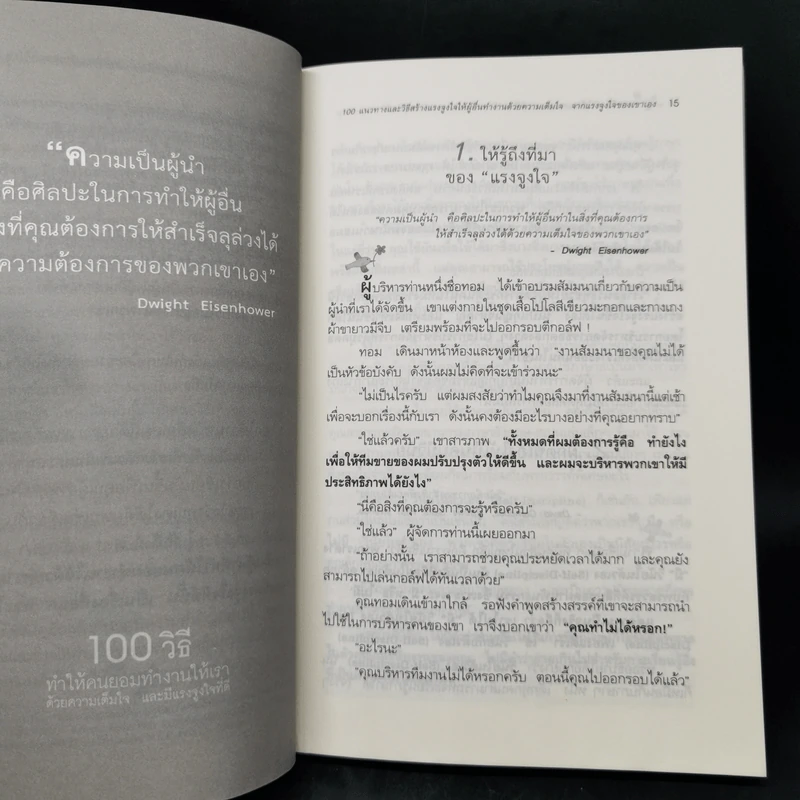 “ความเป็นผู้นำ
คือศิลปะในการทำให้ผู้อื่น
ที่คุณต้องการให้สำเร็จลุล่วงได้
ความต้องการของพวกเขาเอง”
Dwight Eisenhower
100 วิธี
ทำให้คนยอมทำงานให้เรา
ด้วยความเต็มใจ และมีแรงจูงใจที่ดี
100 แนวทางและวิธีสร้างแรงจูงใจให้ผู้อื่นทำงานด้วยความเต็มใจ จากแรงจูงใจของเขาเอง 15
1. ให้รู้ถึงที่มา
ของ “แรงจูงใจ”
“ความเป็นผู้นำ คือศิลปะในการทำให้ผู้อื่นทำในสิ่งที่คุณต้องการ
ให้สำเร็จลุล่วงได้ด้วยความเต็มใจของพวกเขาเอง”
- Dwight Eisenhower
ผู้บริหารท่านหนึ่งชื่อทอม ได้เข้าอบรมสัมมนาเกี่ยวกับความเป็น
ผู้นำที่เราได้จัดขึ้น เขาแต่งกายในชุดเสื้อโปโลสีเขียวมะกอกและกางเกง
ผ้าขายาวมีจีบ เตรียมพร้อมที่จะไปออกรอบตีกอล์ฟ !
ทอม เดินมาหน้าห้องและพูดขึ้นว่า “งานสัมมนาของคุณไม่ได้
เป็นหัวข้อบังคับ ดังนั้นผมไม่คิดที่จะเข้าร่วมนะ”
“ไม่เป็นไรครับ แต่ผมสงสัยว่าทำไมคุณจึงมาที่งานสัมมนานี้แต่เช้า
เพื่อจะบอกเรื่องนี้กับเรา ดังนั้นคงต้องมีอะไรบางอย่างที่คุณอยากทราบ”
“ใช่แล้วครับ” เขาสารภาพ “ทั้งหมดที่ผมต้องการรู้คือ ทำยังไง
เพื่อให้ทีมขายของผมปรับปรุงตัวให้ดีขึ้น และผมจะบริหารพวกเขาให้มี
ประสิทธิภาพได้ยังไง”
“นี่คือสิ่งที่คุณต้องการจะรู้หรือครับ”
“ใช่แล้ว” ผู้จัดการท่านนี้เผยออกมา
“ถ้าอย่างนั้น เราสามารถช่วยคุณประหยัดเวลาได้มาก และคุณยัง
สามารถไปเล่นกอล์ฟได้ทันเวลาด้วย”
คุณทอมเดินเข้ามาใกล้ รอฟังคำพูดสร้างสรรค์ที่เขาจะสามารถนำ
ไปใช้ในการบริหารคนของเขา เราจึงบอกเขาว่า “คุณทำไม่ได้หรอก!”
“อะไรนะ”
“คุณบริหารทีมงานไม่ได้หรอกครับ ตอนนี้คุณไปออกรอบได้แล้ว”